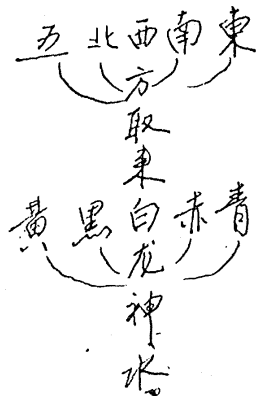 東南西北五
方
取
来
青赤白黑黃
龙
神
水